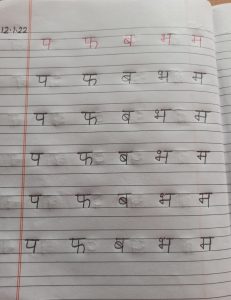 12.1.22
प फ ब भ म
प फ ब भ म
प फ ब भ म
प फ ब भ म
प फ ब भ म
प फ ब भ म